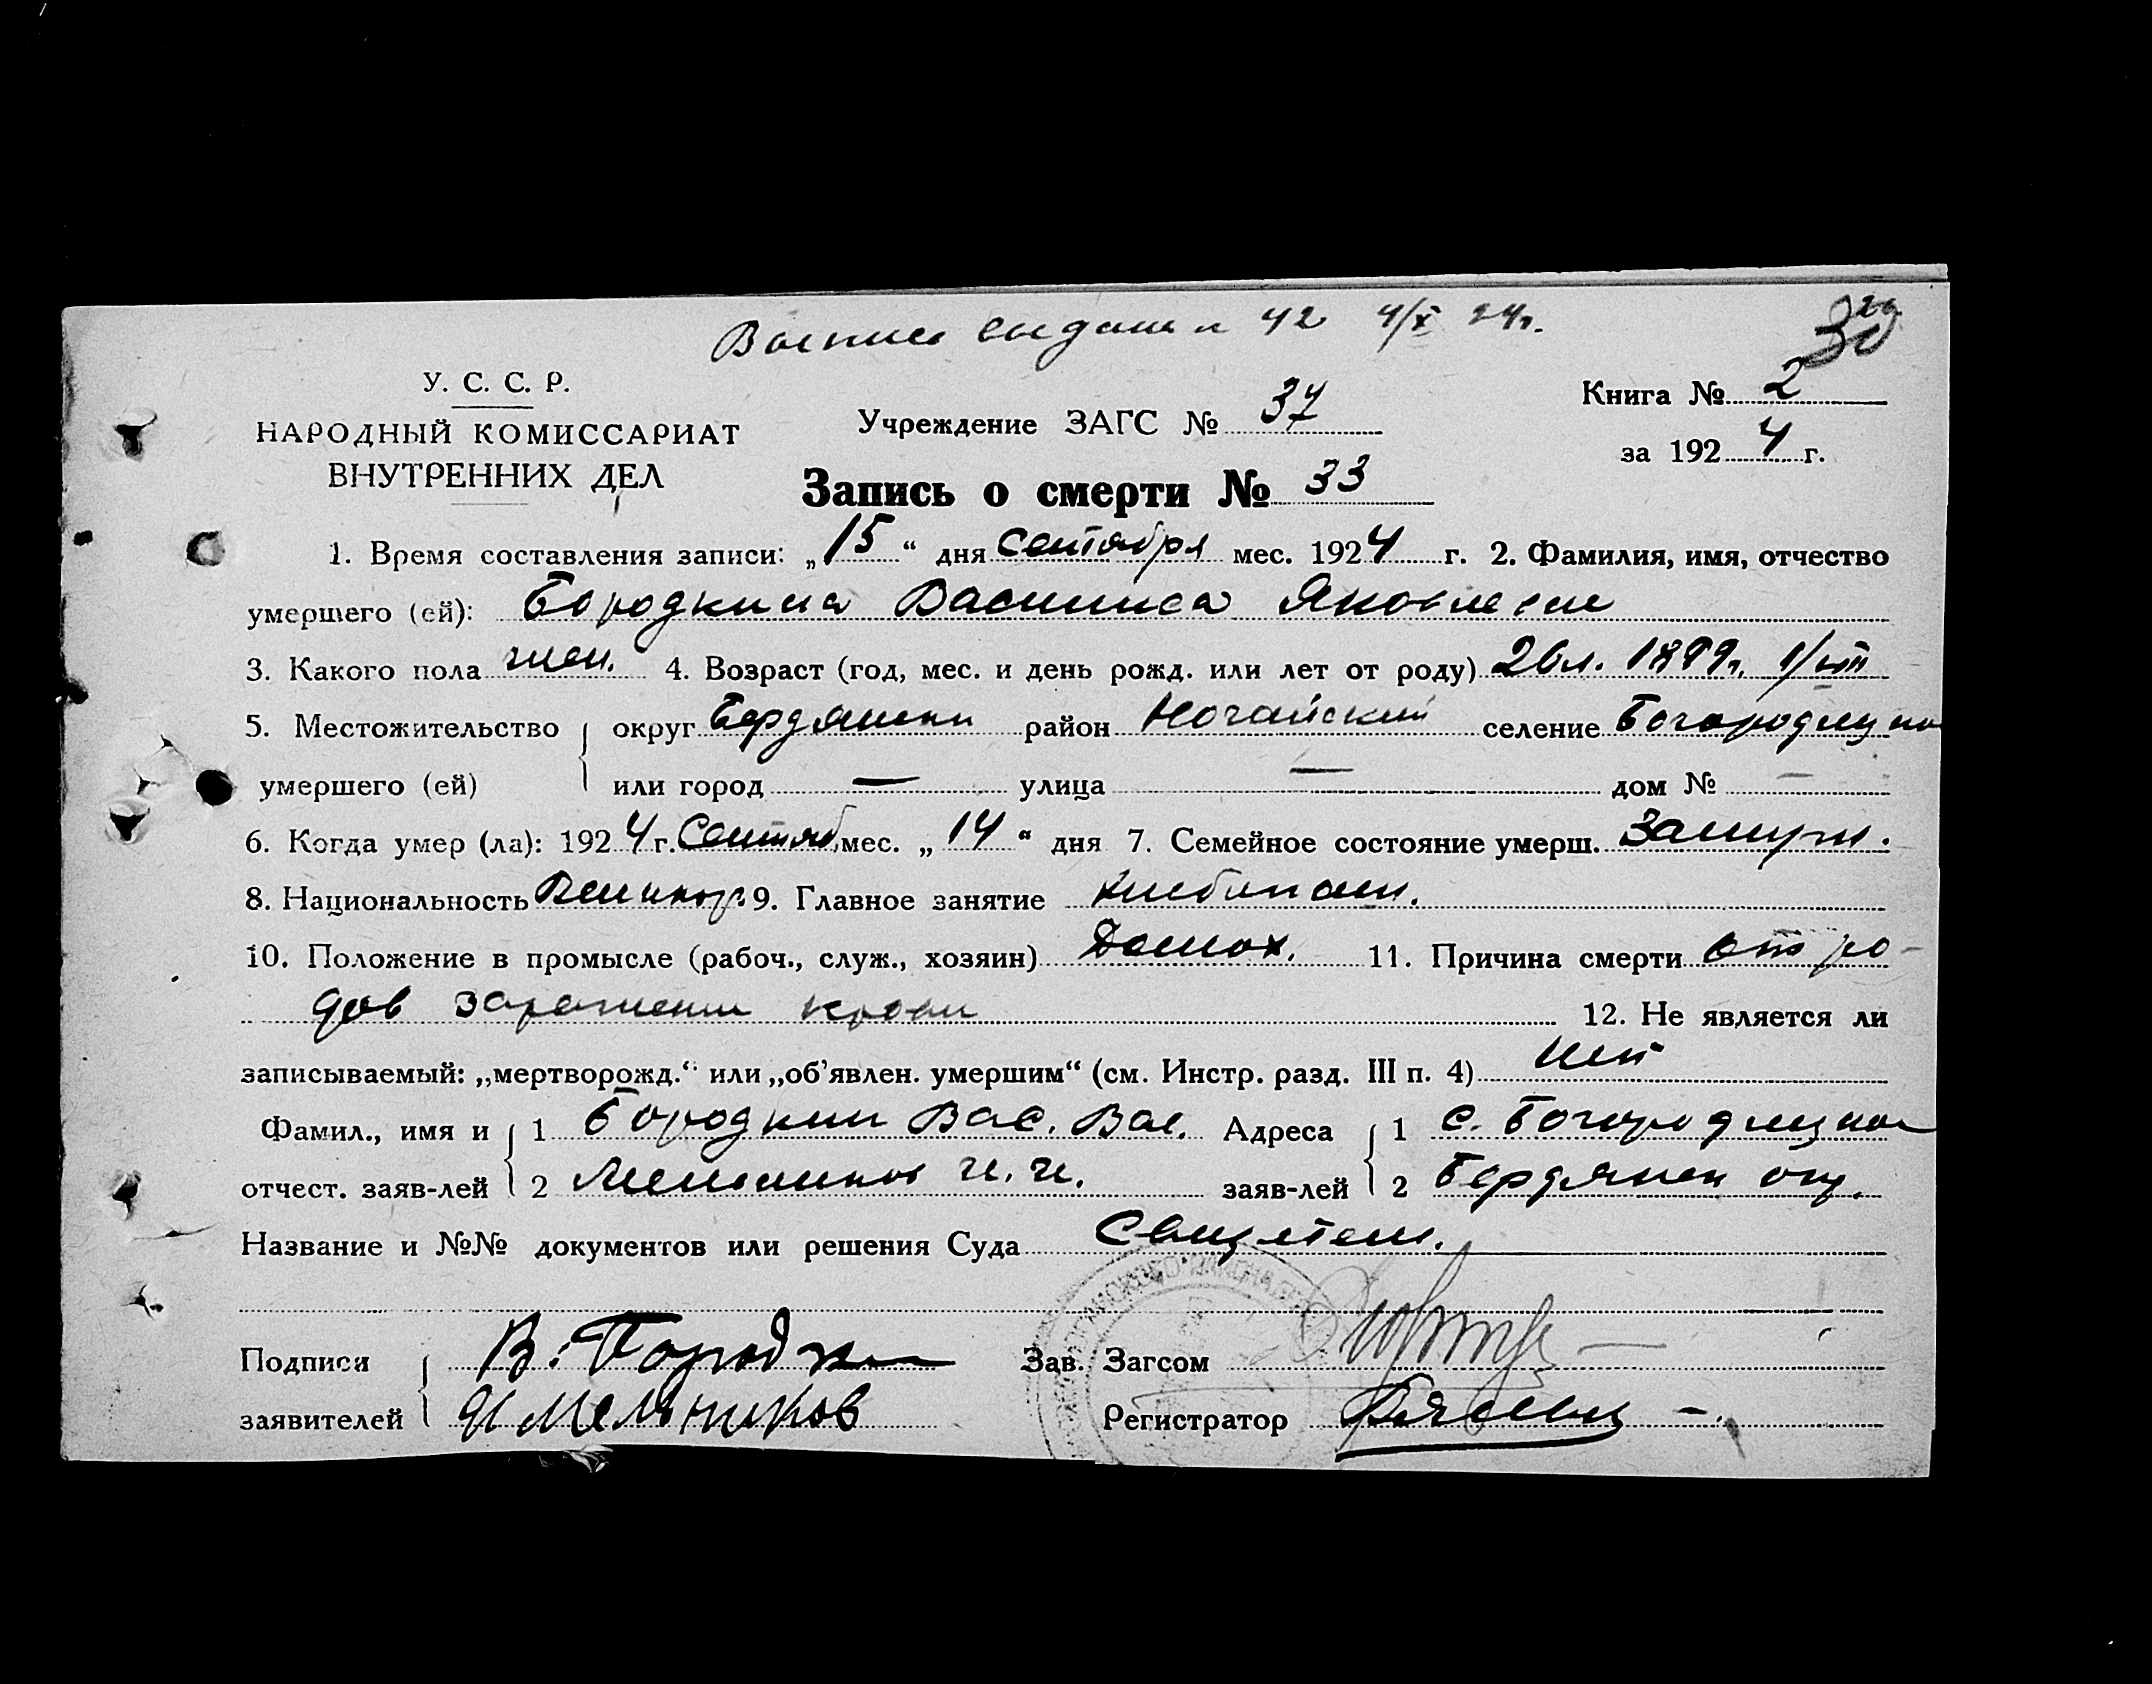 Выпись выдана № 42 4/X 24г.
29
30
У. С. С. Р.
НАРОДНЫЙ КОМИССАРИАТ
ВНУТРЕННИХ ДЕЛ
Учреждение ЗАГС № 37
Книга № 2
за 1924 г.
Запись о смерти № 33
1. Время составления записи: „15“ дня Сентября мес. 1924 г. 2. Фамилия, имя, отчество
умершего (ей): Бородкина Василиса Яковлевн
3. Какого пола жен. 4. Возраст (год, мес. и день рожд. или лет от роду)
5. Местожительство округ Бердянски район Ногайский селение Богородицкое
умершего (ей) или город — улица — дом № —
6. Когда умер (ла): 1924 г. Сентяб. мес. „14“ дня 7. Семейное состояние умерш. Замуж.
8. Национальность Великор. 9. Главное занятие хлебопаш.
10. Положение в промысле (рабоч., служ., хозяин) Домох. 11. Причина смерти от ро-
дов заражение крови 12. Не является ли
записываемый: „мертворожд.“ или „об’явлен. умершим“ (см. Инстр. разд. III п. 4) Нет
Фамил., имя и 1 Бородкин Вас. Вас. Адреса 1 с. Богородицкое
отчест. заяв-лей 2 Мельников И. И. заяв-лей 2 Бердянск окр.
Название и №№ документов или решения Суда
Подписи В. Бородкин Зав. Загсом
заявителей И Мельников Регистратор